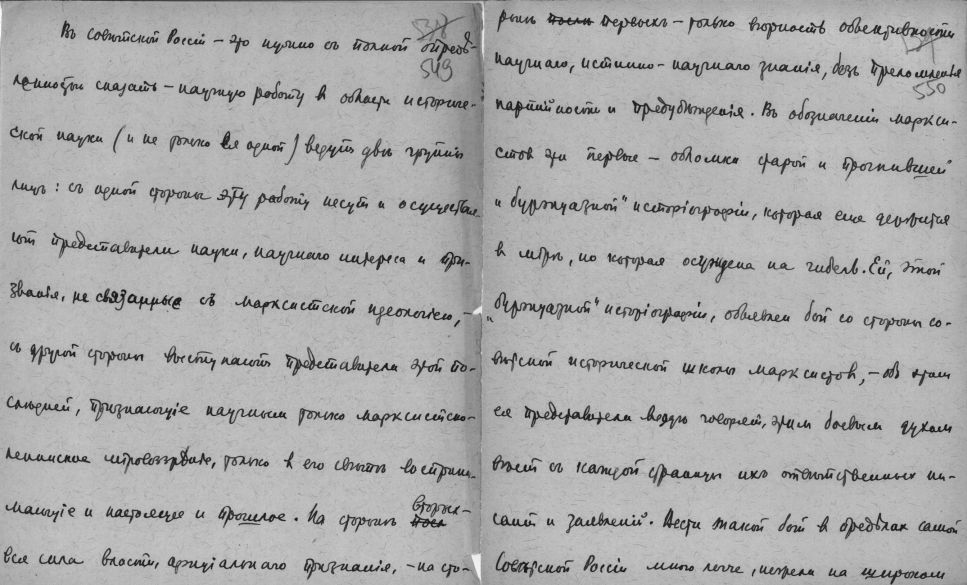 538
549
Въ Совѣтской Россіи – это нужно съ полной опредѣ-
ленностью сказать – научную работу в области историче-
ской науки (и не только ея одной) ведутъ двѣ группы
лицъ: съ одной стороны эту работу несутъ и осуществля-
ютъ представители науки, научнаго интереса и при-
званія, не связанные съ марксистской идеологіею, –
съ другой стороны выступаютъ представители этой по-
слѣдней, признающіе научным только марксистско-
ленинское міровоззрѣніе, только в его свѣтѣ восприни-
мающіе и настоящее и прошлое. На сторонѣ посл вторых –
вся сила власти, оффиціальнаго признанія, – на сто-
550
ронѣ посл первыхъ – только вѣрность объективности
научнаго, истинно-научнаго знанія, безъ преломленія
партійности и предубѣжденія. Въ обозначеніи маркси-
стов эти первые – обломки старой и прогнившей
„буржуазной" исторіографіи, которая еще держится
в мірѣ, но которая осуждена на гибель. Ей, этой
„буржуазной" исторіографіи, объявлен бой со стороны со-
вѣтской исторической школы марксистов, – об этом
ея представители всюду говорят, этим боевым духом
вѣет съ каждой страницы ихъ отвѣтственных пи-
саній и заявленій. Вести такой бой в предѣлах самой
Совѣтской Россіи много легче, нежели на широком